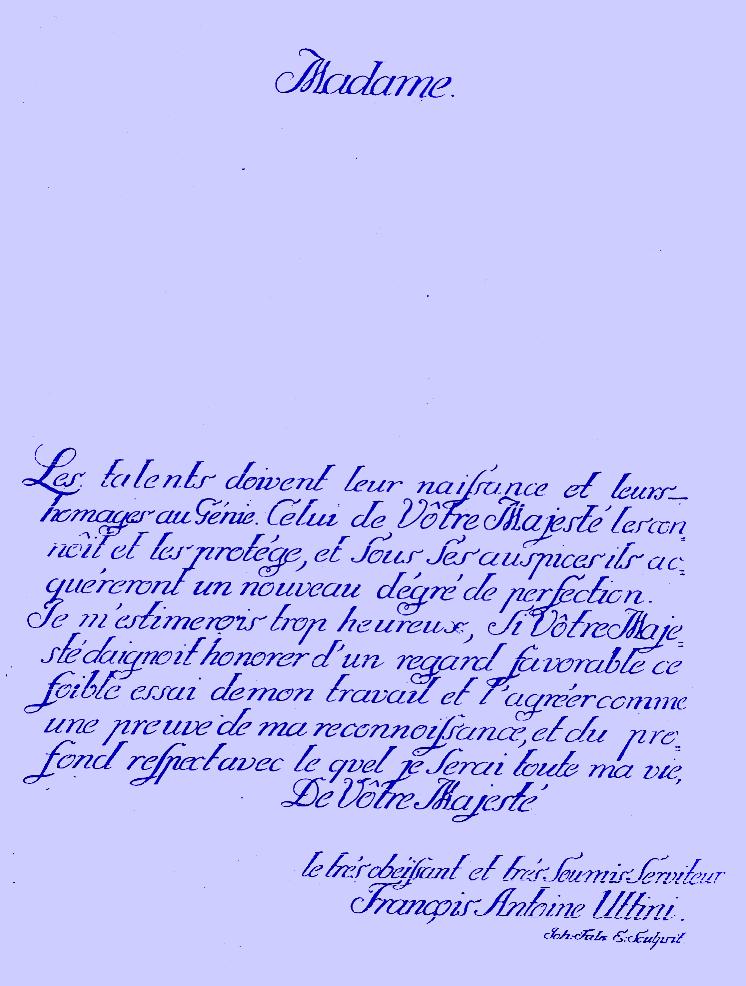 Madame.
Les talents doivent leur naissance et leurs
homages au Génie. Celui de Vôtre Majesté les con=
noît et les protége, et sous ses auspices ils ac=
quéreront un nouveau dégré de perfection.
Je m'estimerois trop heureux, si Vôtre Maje=
sté daignoit honorer d'un regard favorable ce
foible essai de mon travail et l'agréer comme
une preuve de ma reconnoissance, et du pro=
fond respect avec le quel je serai toute ma vie,
De Vôtre Majesté
le trés obéissant et trés soumis Serviteur
François Antoine Uttini.
Joh. S: Sculpsit